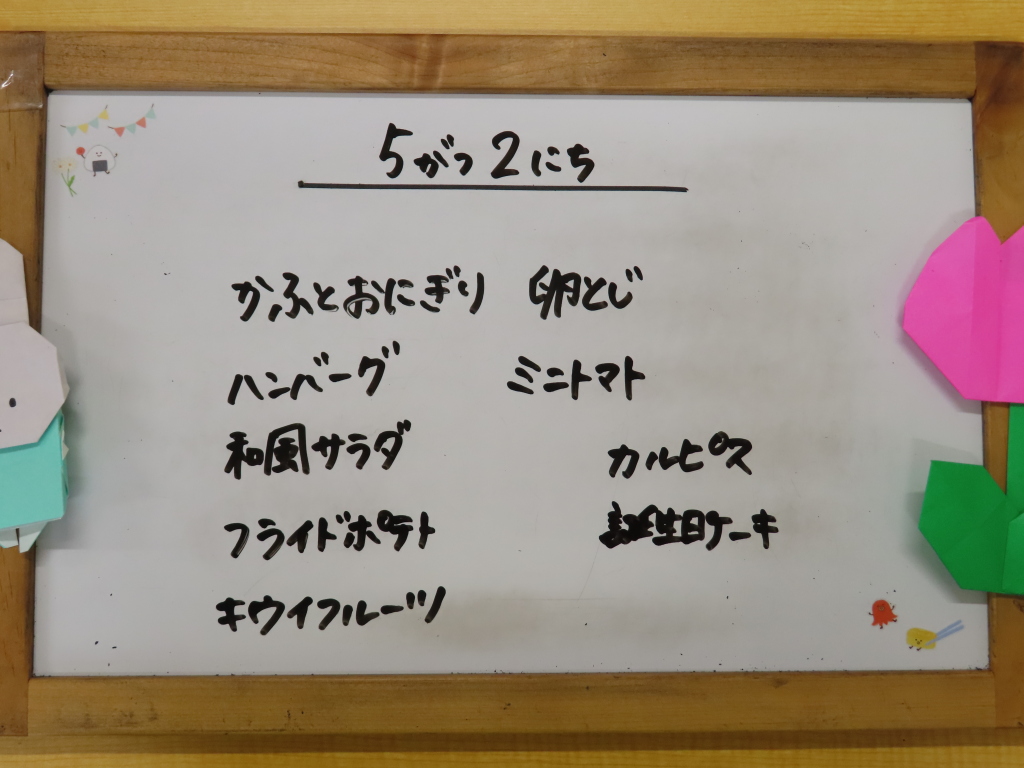 5がつ2にち
かぶとおにぎり 卵とじ
ハンバーグ ミニトマト
和風サラダ カルピス
フライドポテト 誕生日ケーキ
キウイフルーツ